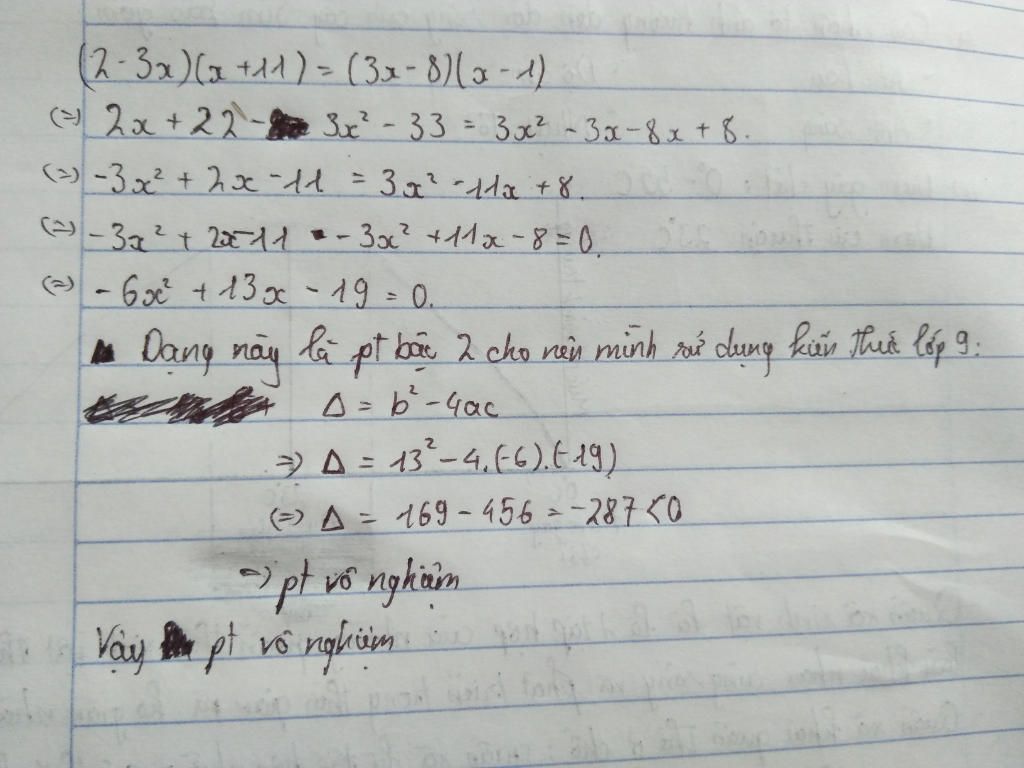 (2-3x)(x+11) = (3x-8)(x-1)
(=) 2x + 22 - 3x² - 33 = 3x² - 3x - 8x + 8.
(=) -3x² + 2x - 11 = 3x² - 11x + 8.
(=) -3x² + 2x - 11 - 3x² + 11x - 8 = 0.
(=) - 6x² + 13x - 19 = 0.
Dạng này là pt bậc 2 cho nên mình sử dụng kiến thức lớp 9:
Δ = b² - 4ac
=) Δ = 13² - 4.(-6).(-19)
(=) Δ = 169 - 456 = -287 < 0
=) pt vô nghiệm
Vậy pt vô nghiệm